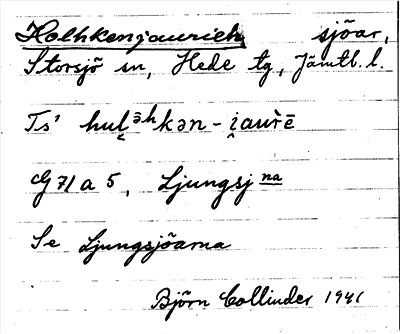 Holhkenjaurieh sjöar,
Storsjö sn, Hede tg, Jämtl. l.
Ts' hul̯ǝhkǝn - i̯aùrē
G 71 a 5, Ljungsj na
Se Ljungsjöarna
Björn Collinder 1941